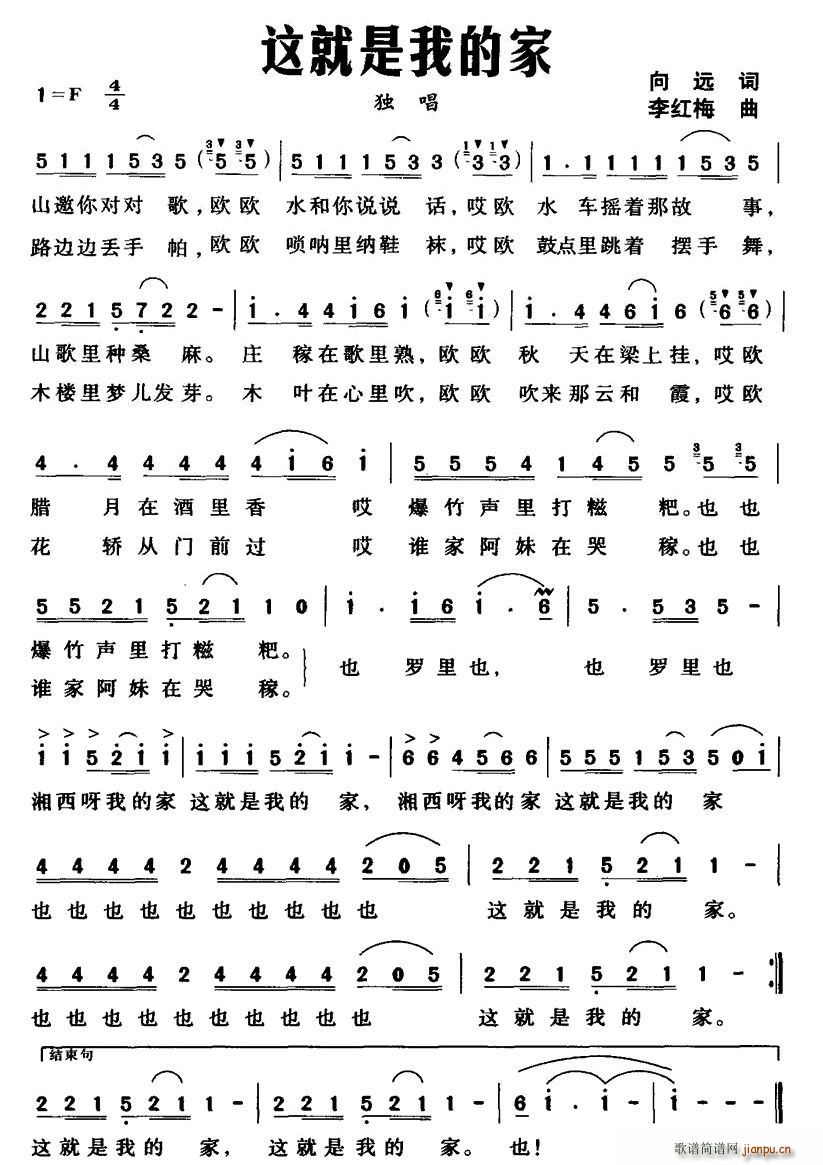 这就是我的家
1=F 4/4
独 唱
向 远 词
李红梅 曲
5 1 1 1 1 5 3 5 (3 5 3 5) | 5 1 1 1 5 3 5 (1 3 1 3) | 1 . 1 1 1 1 1 5 3 5 |
山邀你对对 歌，欧欧 水和你说说 话，哎欧 水 车摇着那故 事，
路边边丢手 帕，欧欧 唢呐里纳鞋 袜，哎欧 鼓点里跳着 摆手 舞，
2 2 1 5 7 2 2 - | 1 . 4 4 1 6 1 (6 1 6 1) | 1 . 4 4 6 1 6 (5 6 5 6) |
山歌里种桑 麻。庄 稼在歌里熟，欧欧 秋 天在梁上挂，哎欧
木楼里梦儿发芽。木 叶在心里吹，欧欧 吹来那云和 霞，哎欧
4 . 4 4 4 4 4 1 6 1 | 5 5 5 4 1 4 5 3 5 3 5 |
腊 月在酒里香 哎 爆竹声里打糍 粑。也也
花 轿从门前过 哎 谁家阿妹在哭 稼。也也
5 5 2 1 5 2 1 1 0 | 1 . 1 6 1 . 6 | 5 . 5 3 5 - |
爆竹声里打糍 粑。
也 罗里也， 也 罗里也
谁家阿妹在哭 稼。
1 1 5 2 1 1 | 1 1 1 5 2 1 1 - | 6 6 4 5 6 6 | 5 5 5 1 5 3 5 0 1 |
湘西呀我的家 这就是我的 家， 湘西呀我的家 这就是我的 家
4 4 4 4 2 4 4 4 4 2 0 5 | 2 2 1 5 2 1 1 - |
也也也也也也也也也也 这就是我的 家。
4 4 4 4 2 4 4 4 4 2 0 5 | 2 2 1 5 2 1 1 - :‖
也也也也也也也也也也 这就是我的 家。
结束句
2 2 1 5 2 1 1 - | 2 2 1 5 2 1 1 - | 6 1 . 1 - | 1 - - - ‖
这就是我的 家， 这就是我的 家。也！
歌谱简谱网
jianpu.cn